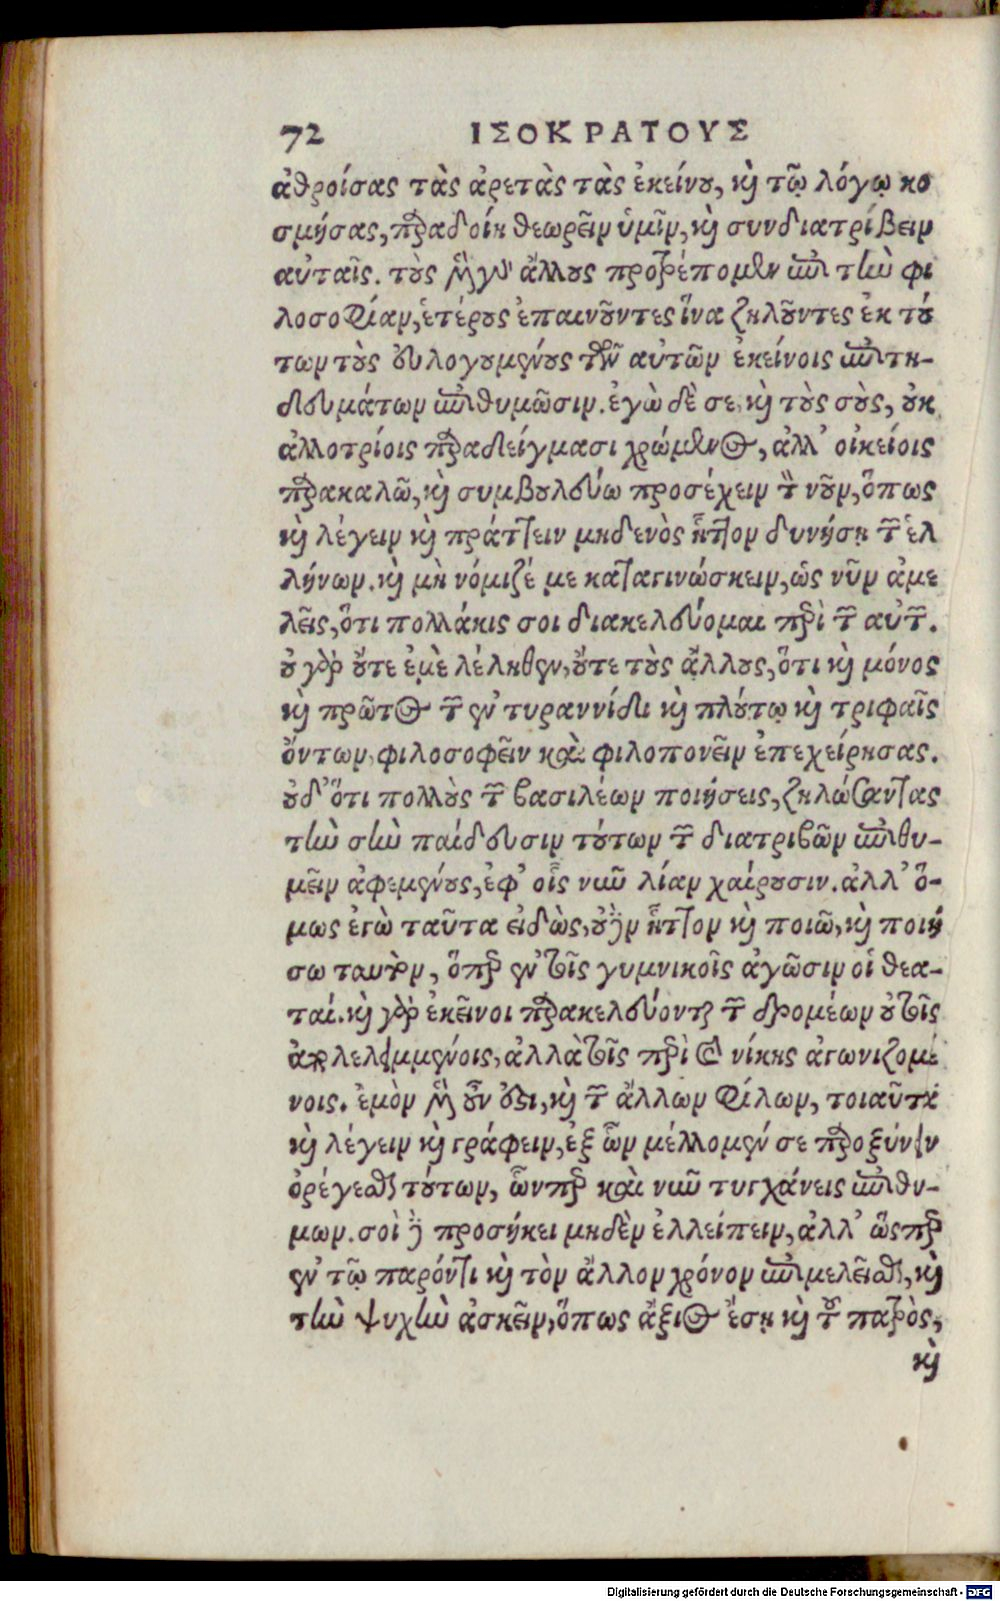 72 ΙΣΟΚΡΑΤΟΥΣ
ἀθροίσας τὰς ἀρετὰς τὰς ἐκείνου, καὶ τῷ λόγῳ κο
σμήσας, παραδοίη θεωρεῖν ὑμῖν, καὶ συνδιατρίβειν
αὐταῖς. τοὺς μὲν γὰρ ἄλλους προτρέπομεν ἐπὶ τὴν φι
λοσοφίαν, ἑτέρους ἐπαινοῦντες ἵνα ζηλοῦντες ἐκ τού
των τοὺς εὐλογουμένους τῶν αὐτῶν ἐκείνοις ἐπιτη-
δευμάτων ἐπιθυμῶσιν. ἐγὼ δὲ σε καὶ τοὺς σοὺς, οὐκ
ἀλλοτρίοις παραδείγμασι χρώμενος, ἀλλ' οἰκείοις
παρακαλῶ, καὶ συμβουλεύω προσέχειν τὸν νοῦν, ὅπως
καὶ λέγειν καὶ πράττειν μηδενὸς ἧττον δυνήσῃ τῶν ἑλ
λήνων. καὶ μὴ νόμιζέ με καταγινώσκειν, ὡς νῦν ἀμε
λεῖς, ὅτι πολλάκις σοι διακελεύομαι περὶ τῶν αὐτῶν.
οὐ γὰρ οὔτε ἐμὲ λέληθεν, οὔτε τοὺς ἄλλους, ὅτι καὶ μόνος
καὶ πρῶτος τῶν ἐν τυραννίδι καὶ πλούτῳ καὶ τριφαῖς
ὄντων, φιλοσοφεῖν καὶ φιλοπονεῖν ἐπεχείρησας.
οὐδ' ὅτι πολλοὺς τῶν βασιλέων ποιήσεις, ζηλώσαντας
τὴν σὴν παίδευσιν τούτων τῶν διατριβῶν ἐπιθυ-
μεῖν ἀφεμένους, ἐφ' οἷς νῦν λίαν χαίρουσιν. ἀλλ' ὅ-
μως ἐγὼ ταῦτα εἰδὼς, οὐδὲν ἧττον καὶ ποιῶ, καὶ ποιή
σω ταυτὸν, ὅπερ ἐν τοῖς γυμνικοῖς ἀγῶσιν οἱ θεα-
ταί. καὶ γὰρ ἐκεῖνοι παρακελεύονται τῶν δρομέων οὐ τοῖς
ἀπολελειμμένοις, ἀλλὰ τοῖς περὶ τῆς νίκης ἀγωνιζομέ
νοις. ἐμὸν μὲν οὖν ἐστι, καὶ τῶν ἄλλων φίλων, τοιαῦτα
καὶ λέγειν καὶ γράφειν, ἐξ ὧν μέλλομέν σε παροξύνειν
ὀρέγεσθαι τούτων, ὧνπερ καὶ νῦν τυγχάνεις ἐπιθυ-
μων. σοὶ δὲ προσήκει μηδὲν ἐλλείπειν, ἀλλ' ὥσπερ
ἐν τῷ παρόντι καὶ τὸν ἄλλον χρόνον ἐπιμελεῖσθαι, καὶ
τὴν ψυχὴν ἀσκεῖν, ὅπως ἄξιος ἔσῃ καὶ τοῦ πατρὸς,
καὶ
Digitalisierung gefördert durch die Deutsche Forschungsgemeinschaft - DFG